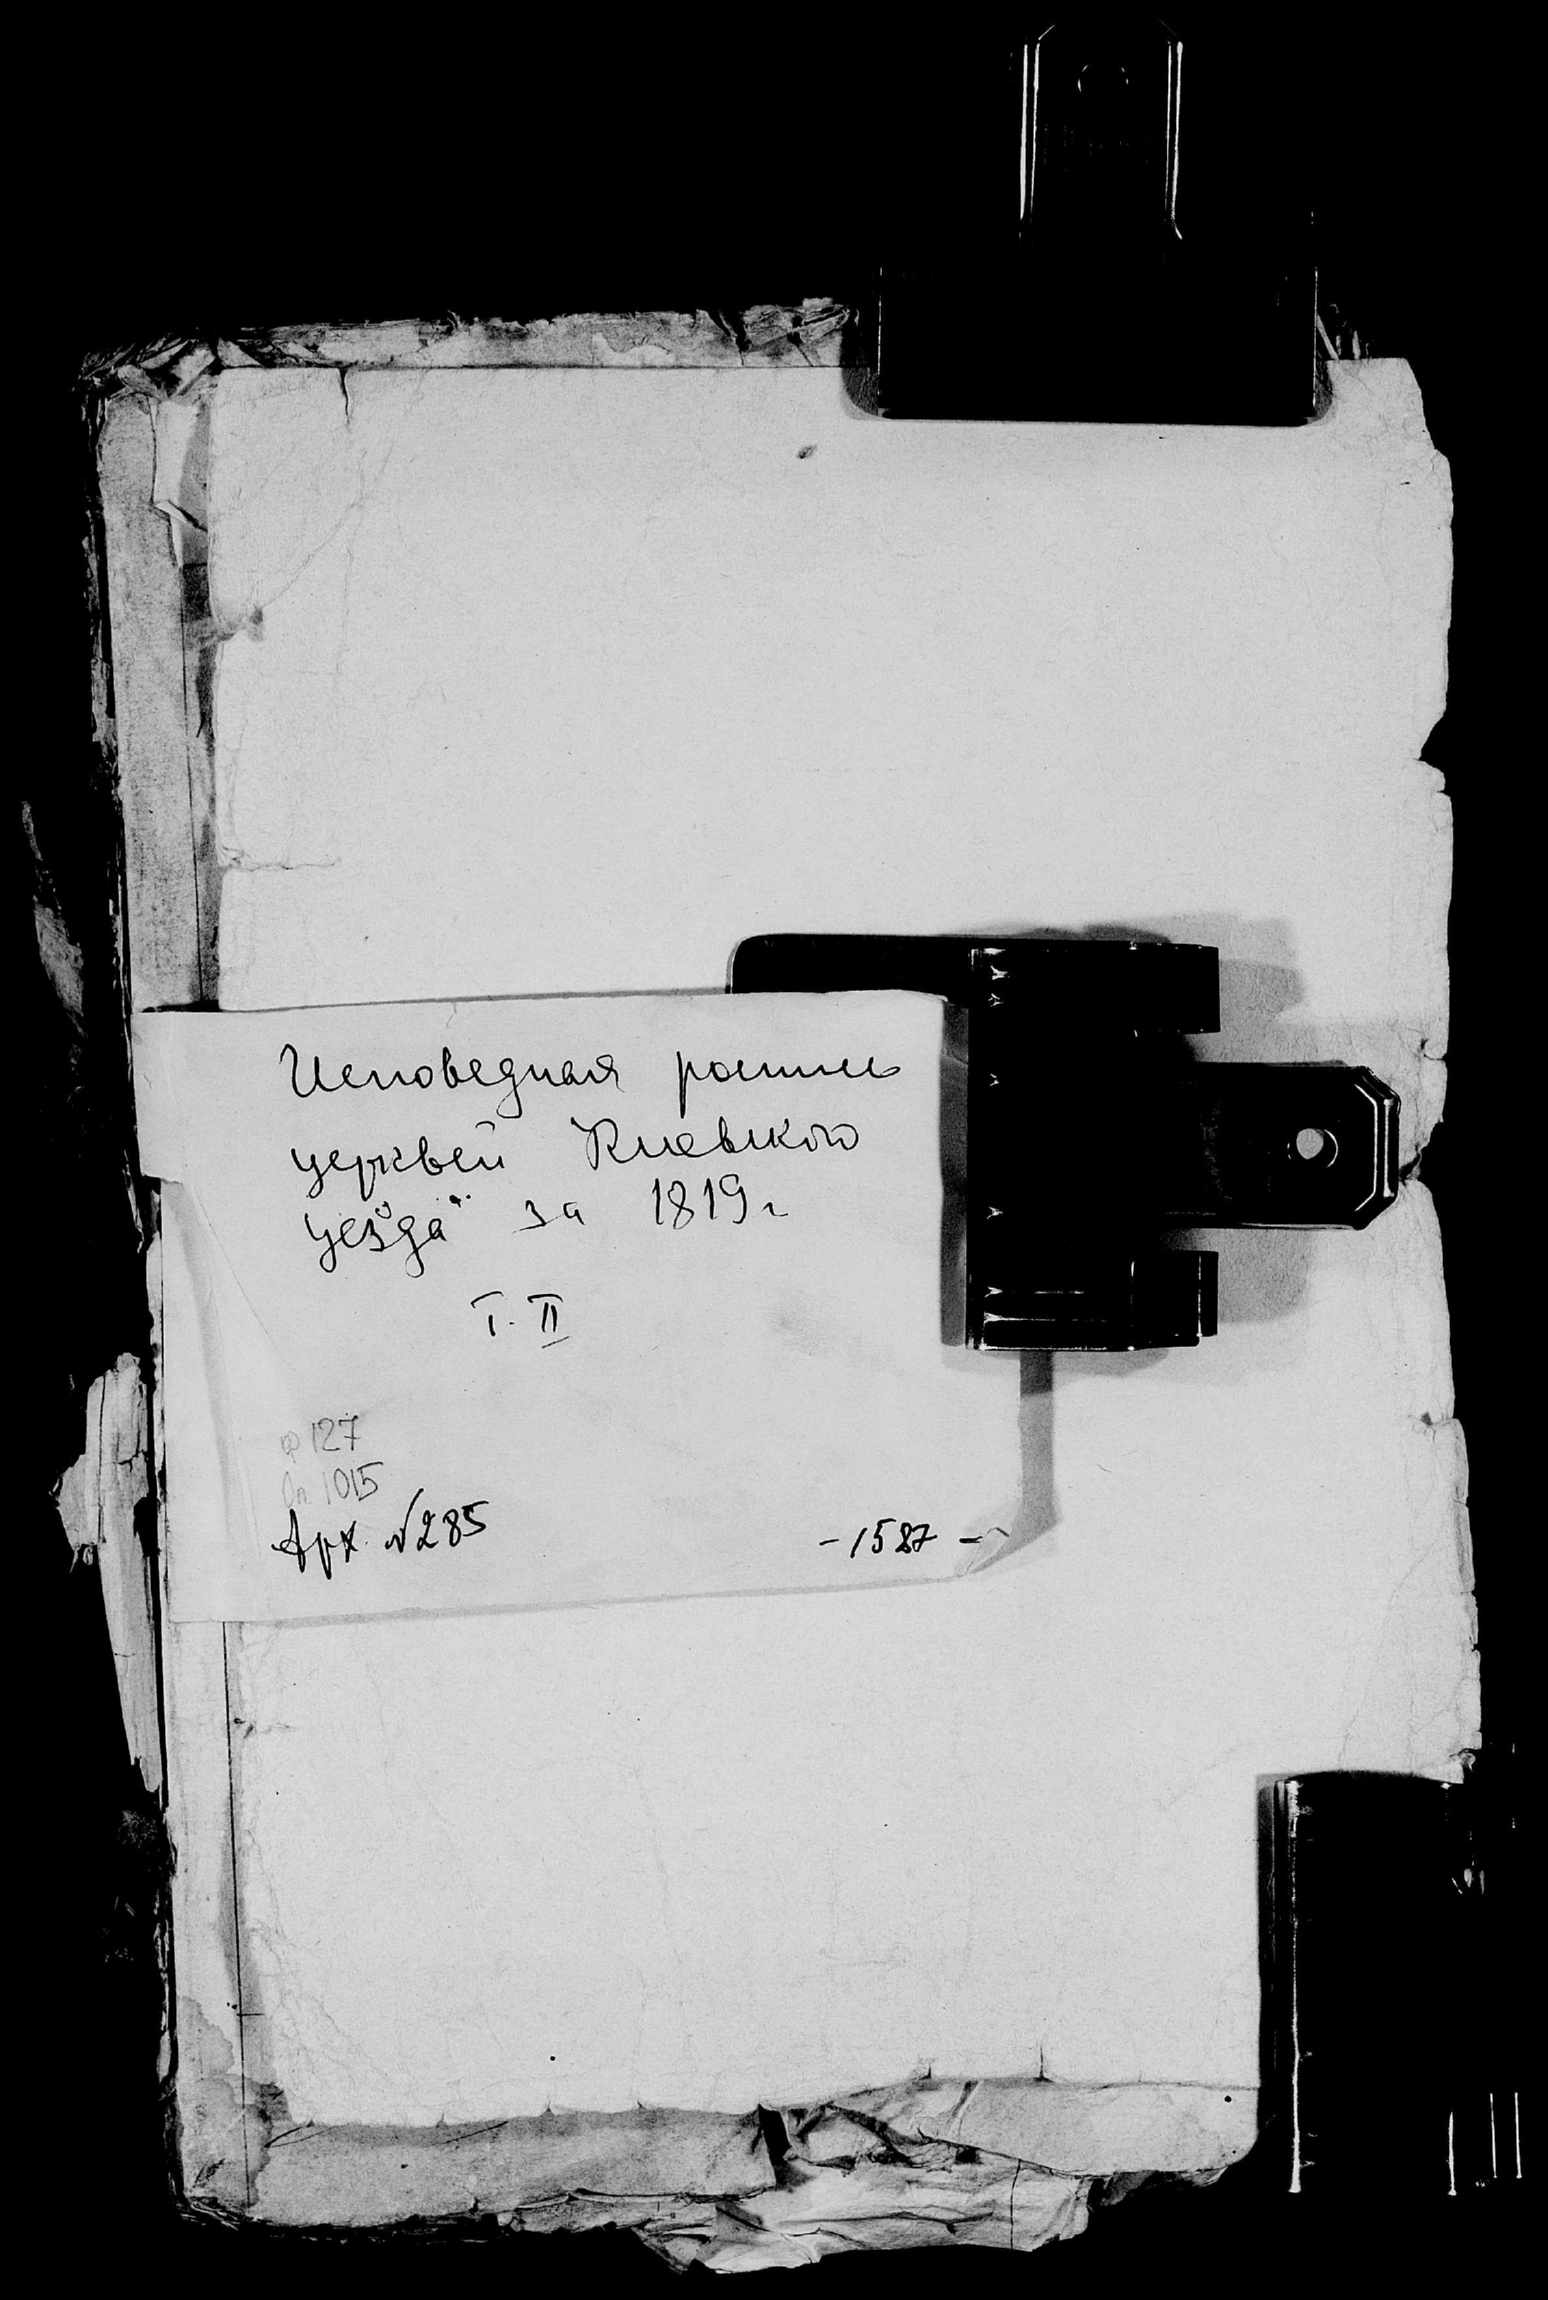 Исповедная роспись
церквей Киевского
уезда за 1819 г
Т. II
ф 127
Оп 1015
Арх. №285
- 1587 -